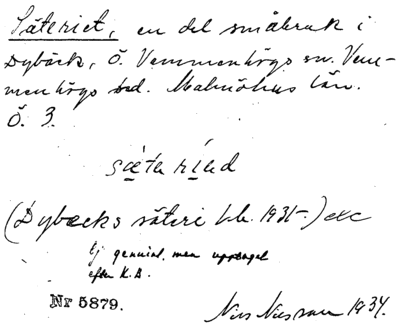 Säteriet, en del småbruk i
Dybäck, Ö. Vemmenhögs sn. Vem-
menhögs hd. Malmöhus län.
Ö. 3.
(Dybecks säteri 1931-) etc
Ej genuint, men upptaget
efter K.B.
Nr 5879.
Nils Nilsson 1934.